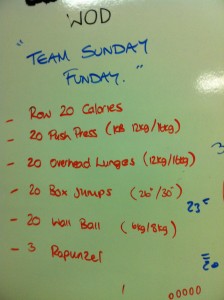 WOD
"TEAM SUNDAY
FUNDAY."
- Row 20 Calories
- 20 Push Press (KB 12kg/16kg)
- 20 Overhead Lunges (12kg/16kg)
- 20 Box Jumps (26"/30")
- 20 Wall Ball (6kg/8kg)
- 3 Rapunzel
23
20
00000